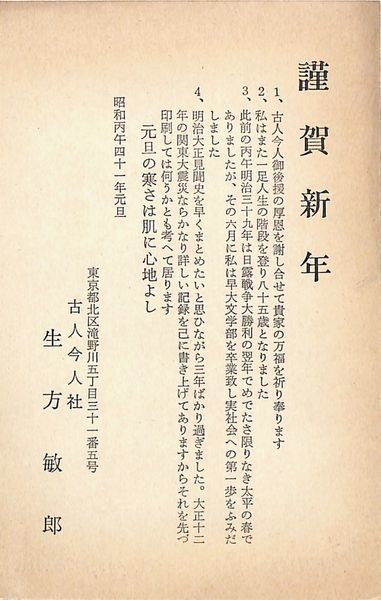 謹賀新年
1、古人今人御後援の厚恩を謝し合せて貴家の万福を祈り奉ります
2、私はまた一足人生の階段を登り八十五歳となりました
3、此前の丙午明治三十九年は日露戦争大勝利の翌年でめでたさ限りなき太平の春で
ありましたが、その六月に私は早大文学部を卒業致し実社会への第一歩をふみだ
しました
4、明治大正見聞史を早くまとめたいと思ひながら三年ばかり過ぎました。大正十二
年の関東大震災ならかなり詳しい記録を己に書き上げてありますからそれを先づ
印刷しては何うかとも考へて居ります
元旦の寒さは肌に心地よし
昭和丙午四十一年元旦
東京都北区滝野川五丁目三十一番五号
古人今人社
生方敏郎